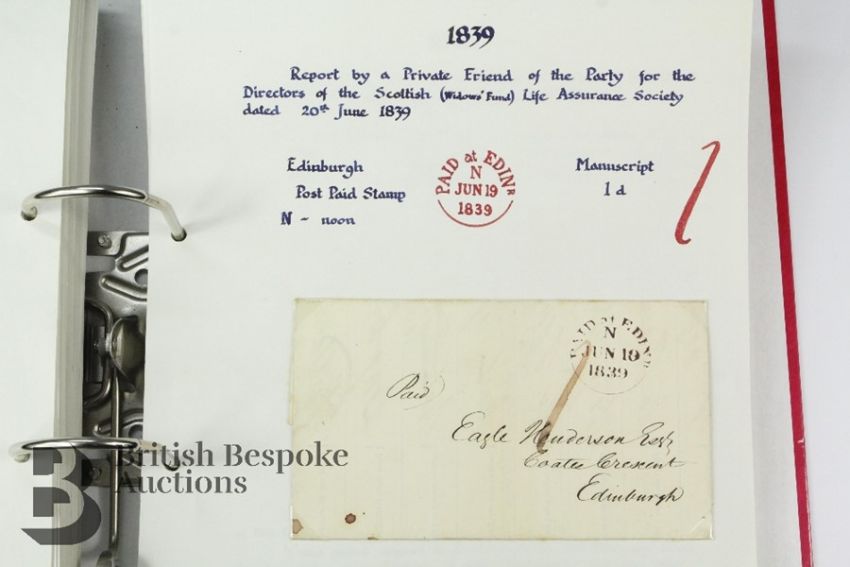 1839
Report by a Private Friend of the Party for the
Directors of the Scottish (Widows' Fund) Life Assurance Society
dated 20th June 1839
Edinburgh
Post Paid Stamp
N - noon
PAID at EDINR
N
JUN 19
1839
Manuscript
1 d
1
PAID at EDINR
N
JUN 19
1839
Paid
Eagle Henderson Esqr
Coates Crescent
Edinburgh
B British Bespoke
Auctions